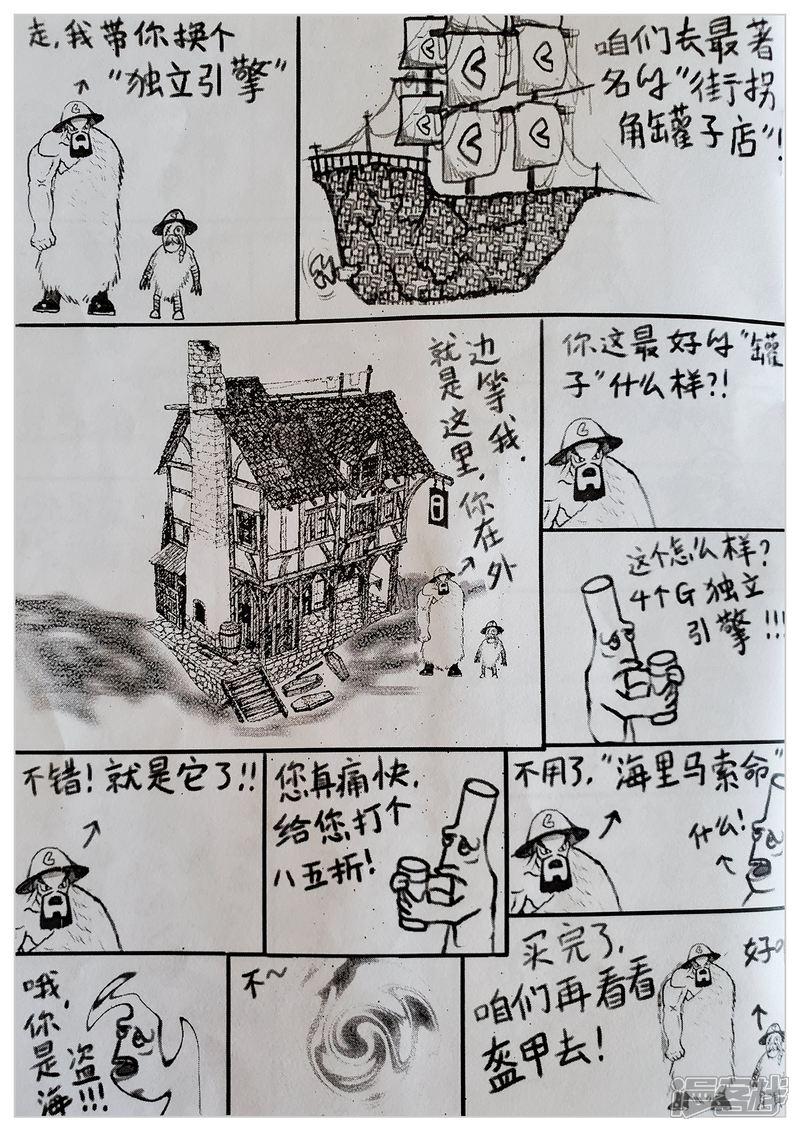 走,我带你换个
"独立引擎"
咱们去最著
名的"街拐
角罐子店"!
边等我.
就是这里,你在外
你这最好的"罐
子"什么样?!
这个怎么样?
4个G独立
引擎!!!
不错!就是它了!!
您真痛快,
给您打个
八五折!
不用了,"海里马索命"
什么!
哦,
你是海
盗!!!
不~
买完了,
咱们再看看
盔甲去!
好。
漫客栈